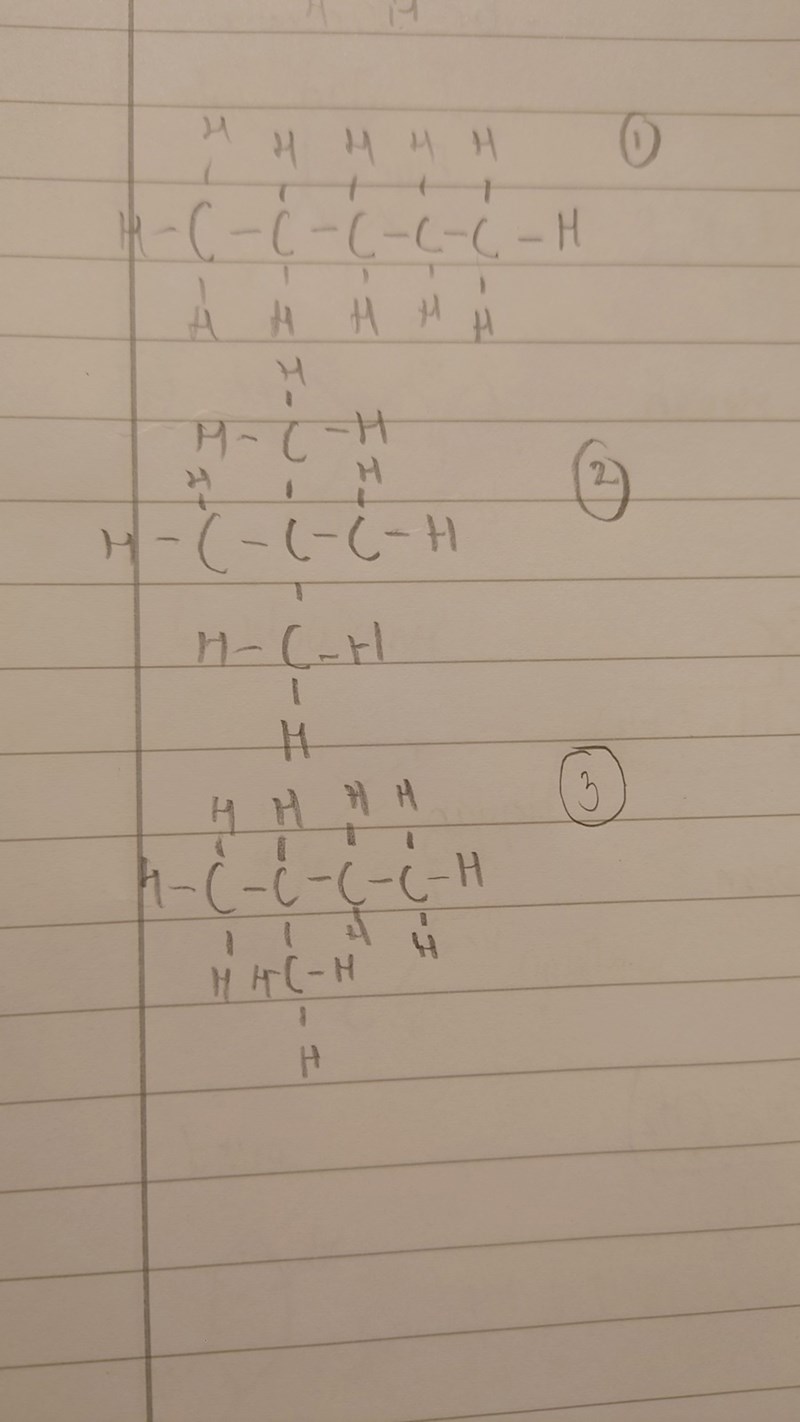 H H
H H H H H ①
H-C-C-C-C-C-H
H H H H H
H
H-C-H
H H ②
H-C-C-C-H
H-C-H
H
③
H H H H
H-C-C-C-C-H
H H
H H-C-H
H